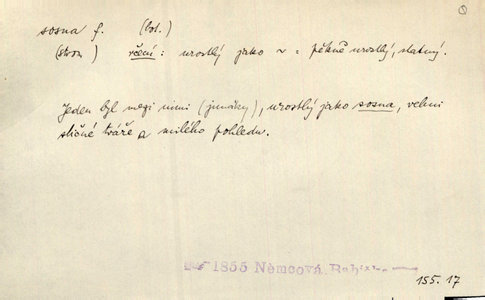 sosna f. (bot.)
(strom) rčení: urostlý jako ~ = pěkně urostlý, statný.
Jeden byl mezi nimi (junáky), urostlý jako sosna, velmi
sličné tváře a milého pohledu.
1855 Němcová,
155. 17